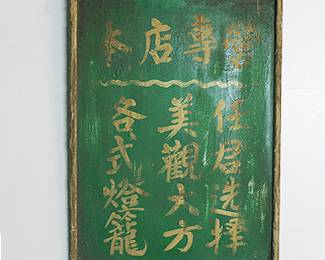 本店專營
各式燈籠
美觀大方
任君选擇